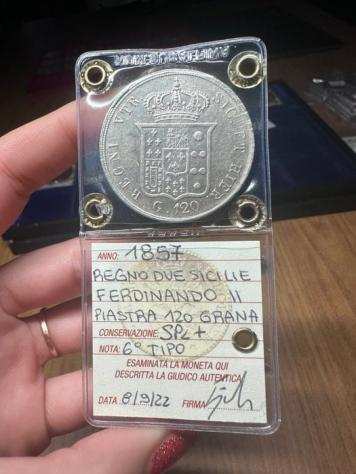 REGNI VTR. SIC. ET HIER.
G. 120
ANNO: 1857
REGNO DUE SICILIE
FERDINANDO II
PIASTRA 120 GRANA
CONSERVAZIONE: SPL +
NOTA: 6° TIPO
ESAMINATA LA MONETA QUI
DESCRITTA LA GIUDICO AUTENTICA
DATA 8/9/22 FIRMA